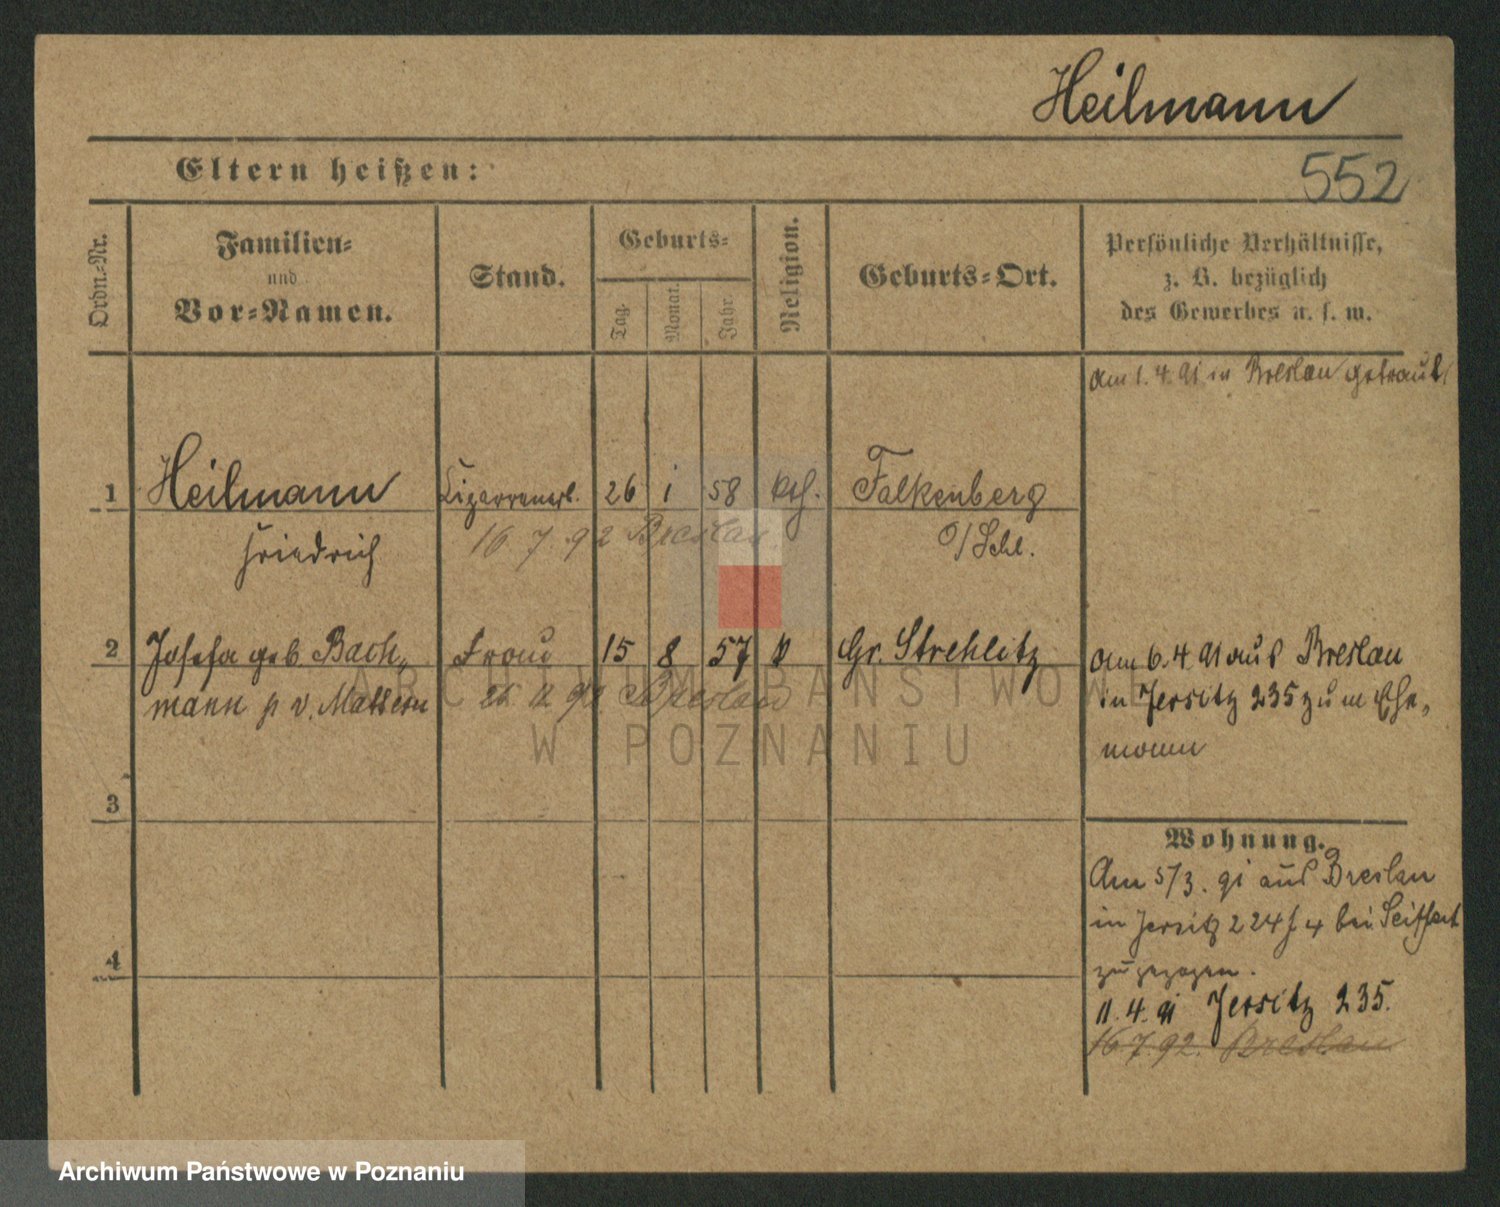 Heilmann
552
Eltern heißen:
Ordn.-Nr.
Familien-
und
Vor-Namen.
Stand.
Geburts-
Tag.
Monat.
Jahr.
Religion.
Geburts-Ort.
Persönliche Verhältnisse,
z. B. bezüglich
des Gewerbes u. s. w.
Am 1. 4. 91 in Breslau getraut
1 Heilmann 26 1 58 kth. Falkenberg
Friedrich O/Schl.
16. 7. 92 Breslau
2 Josefa geb. Bach- Frau 15 8 57 k Gr. Strehlitz
mann p v.
92 Breslau
Am 6. 4. 91 aus Breslau
in Jersitz 235 zum Ehe-
mann
3
4
Wohnung.
Am 5/3. 91 aus Breslau
in Jersitz 224 bei Seiffert
zugezogen.
11. 4. 91 Jersitz 235.
16. 7. 92. Breslau
ARCHIWUM PAŃSTWOWE
W POZNANIU
Archiwum Państwowe w Poznaniu